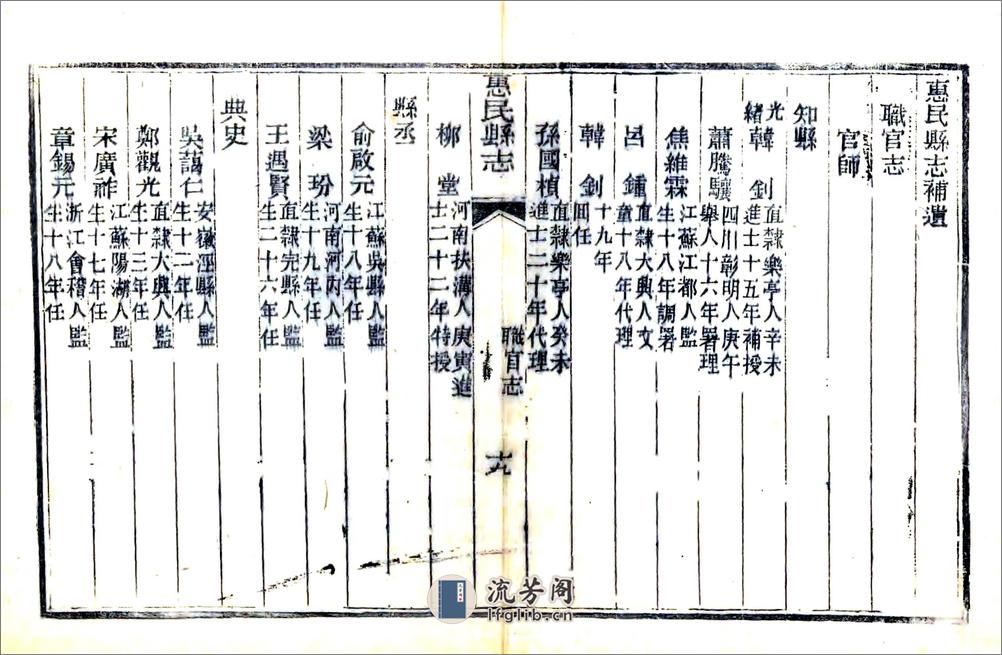 惠民縣志補遺
職官志
官師
知縣
光緒 韓釗 直隸樂亭人辛未進士十五年補授
蕭騰驤 四川彰明人庚午舉人十六年署理
焦維霖 江蘇江都人監生十八年調署
呂鍾 直隸大興人文童十八年代理
韓釗 十九年回任
孫國楨 直隸樂亭人癸未進士二十年代理
惠民縣志 職官志 十九
柳堂 河南扶溝人庚寅進士二十二年特授
縣丞
俞啟元 江蘇吳縣人監生十八年任
梁玢 河南河內人監生十九年任
王遇賢 直隸完縣人監生二十六年任
典史
吳藹仁 安徽涇縣人監生十二年任
鄭觀光 直隸大興人監生十三年任
宋廣祚 江蘇陽湖人監生十七年任
章錫元 浙江會稽人監生十八年任
流芳阁
lfglib.cn